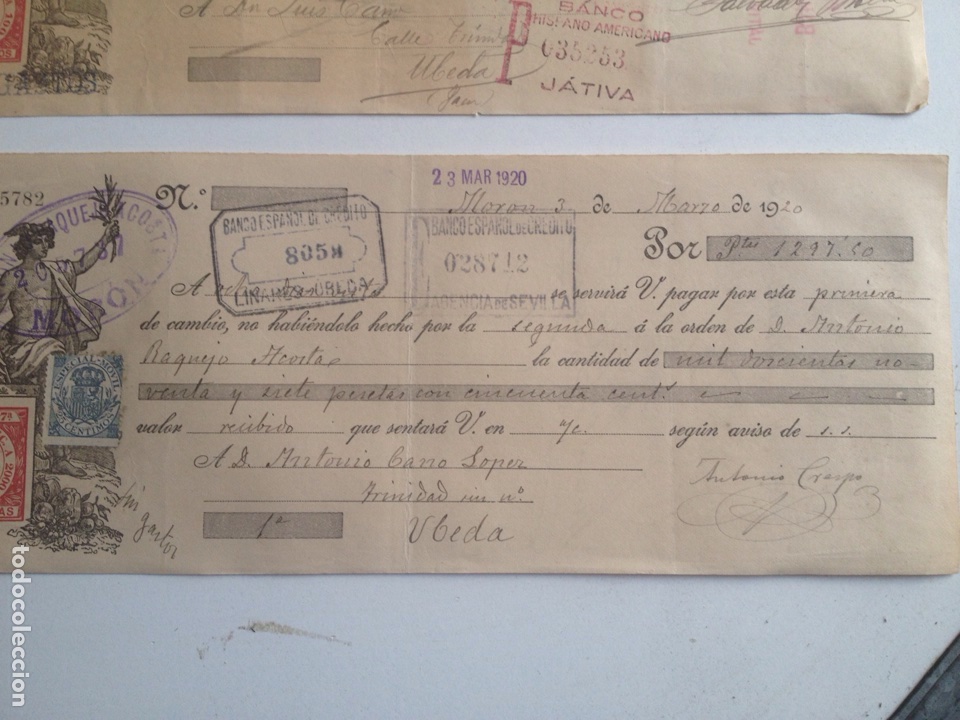 A Dn Luis Cano
Calle
Ubeda
(Jaen)
BANCO
HISPANO AMERICANO
035253
JÁTIVA
5782
23 MAR 1920
N.º
Moron 3 de Marzo de 1920
BANCO ESPAÑOL DE CRÉDITO
8058
LINARES-UBEDA
BANCO ESPAÑOL DE CRÉDITO
028712
AGENCIA DE SEVILLA
Por Ptas 1297'50
A se servirá V. pagar por esta primera
de cambio, no habiéndolo hecho por la segunda á la orden de D. Antonio
Raquejo Acosta la cantidad de mil doscientas no-
venta y siete pesetas con cincuenta cent.s
valor recibido que sentará V. en c/c. según aviso de s.s.
A D. Antonio Cano Lopez
Trinidad sin nº
Ubeda
Antonio Crespo
1ª
Sin gastos
ESPECIAL MÓVIL
CENTIMOS
MORON
todocoleccion